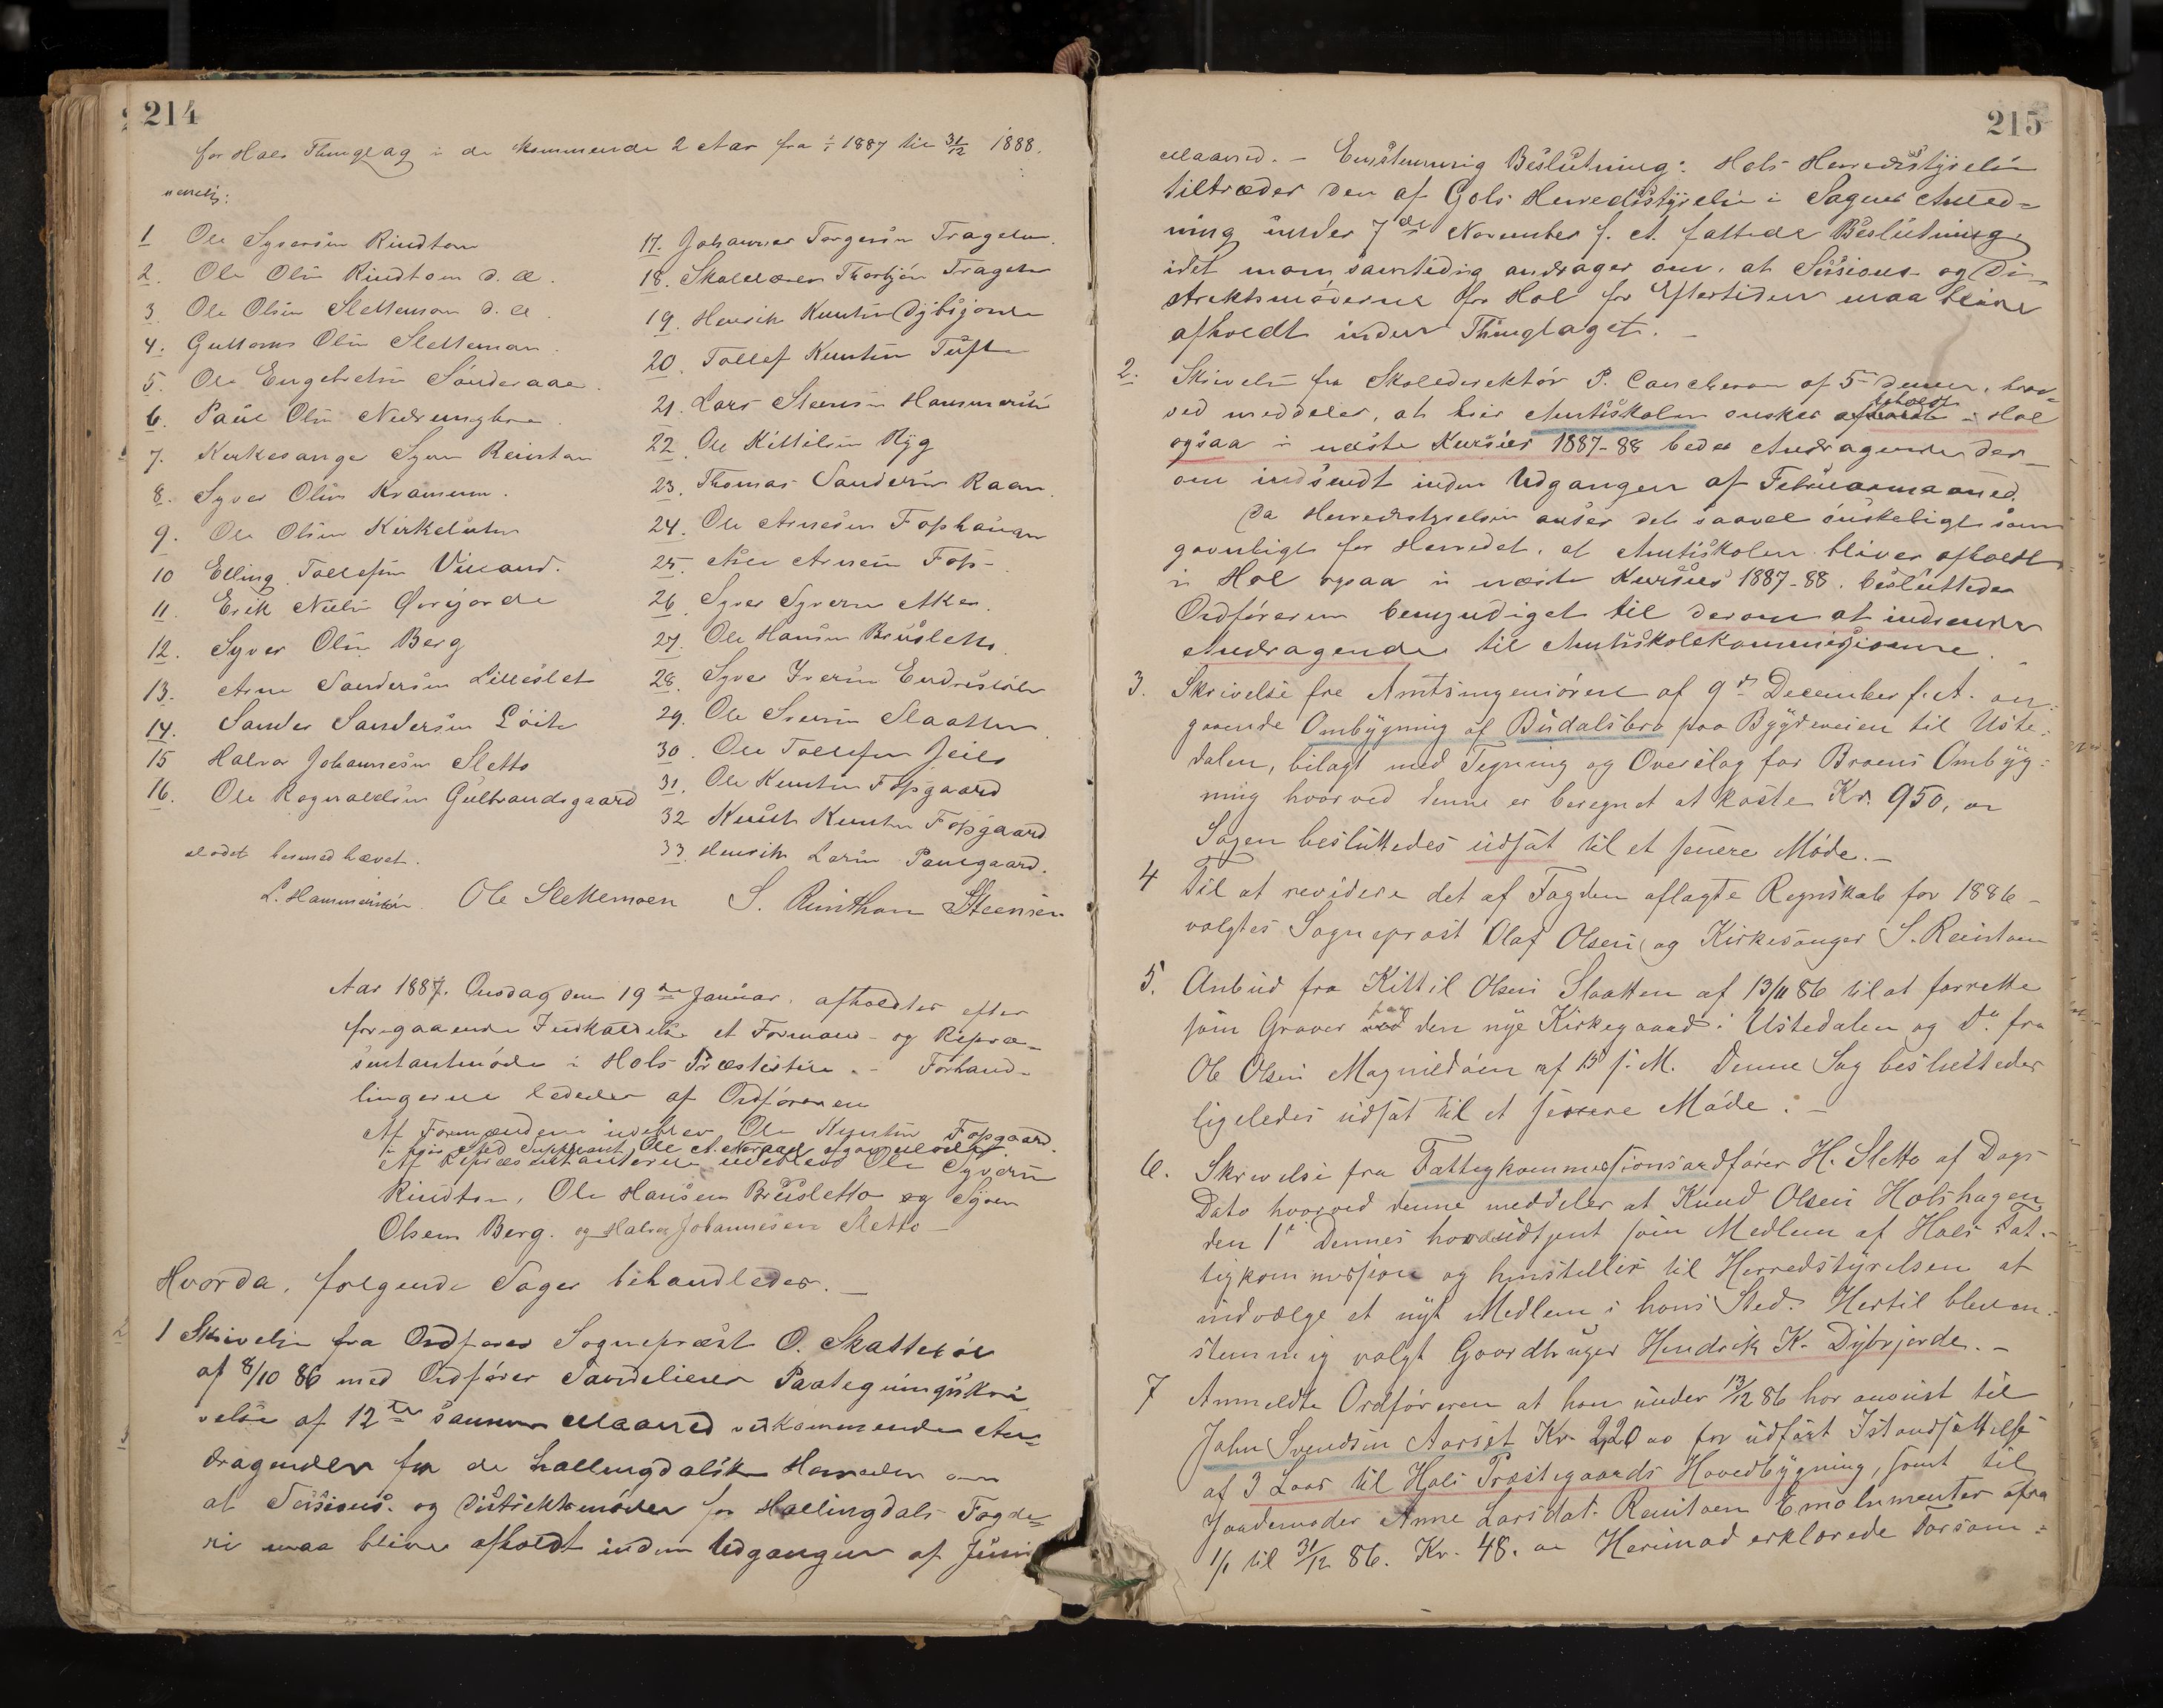 214
for Hols Thinglag i de kommende 2 Aar fra 1/1 1887 til 31/12 1888.
nemlig:
1 Ole Syversen Rindton
2. Ole Olsen Rindtom d. æ.
3 Ole Olsen Slettemoen d. æ.
4. Guttorm Olsen Slettemoen
5. Ole Engebretsen Sønderaae
6. Paul Olsen
7. Kirkesanger Syver Reinton
8. Syver Olsen
9. Ole Olsen
10 Elling Tollefsen Villand.
11. Erik Nielsen Øvrejorde
12. Syver Olsen Berg
13. Arne Sandersen Lilleslet
14. Sander Sandersen Löite
15 Halvor Johannesen Sletto
16. Ole Ragnvaldsen Gulbrandsgaard
17. Johannes Torgersen Trageton.
18. Skolelærer Thorbjørn Trageton
19. Henrik Knutsen Dybsjorde
20. Tollef Knutsen Tufte
21. Lars Steensen Hammersbøn
22. Ole Kittilsen Ryg
23. Thomas Sandersen Raaen
24. Ole Arnesen Foshaugen
25. Asle Arnesen Fos-
26. Syver Syversen Aker.
27. Ole Hansen Brusletto
28. Syver Iversen Endrestøl
29. Ole Svensen Slaatten
30. Ole Tollefsen Jeilo
31. Ole Knutsen Fosgaard
32 Knut Knutsen Fosgaard
33. Henrik Larsen Paulgaard.
Mødet hermed hævet.
L. Hammersbøn. Ole Slettemoen S. Reinthon Steensen
Aar 1887. Onsdag den 19de Januar. afholdtes efter
foregaaende Indkaldelse et Formand- og Repræ-
sentantmøde i Hols Præstestue. - Forhand-
lingerne lededes af Ordføreren
Af Formændene udeblev Ole Knutsen Fosgaard.
i hans Sted Suppleant Ole A.
Af Repræsentanterne udeblev Ole Syversen
Rindton, Ole Hansen Brusletto og Syver
Olsen Berg. og Halvor Johannesen Sletto -
Hvorda, følgende Sager behandledes. -
1 Skrivelse fra Ordfører Sogneprest O. Skattebøl
af 8/10 86 med Ordfører Paategningsskri-
velse af 12te samme Maaned vedkommende An-
dragender fra de hallingdalske Herreder om
at Sessions- og Distriktsmøder for Hallingdals Fogde-
ri maa blive afholdt inden Udgangen af Juni
215
Maaned. - Enstemmig Beslutning: Hols Herredsstyrelse
tiltræder den af Gols Herredsstyrelse i Sagens Anled-
ning under 7de November f. A. fattede Beslutning,
idet man samtidig andrager om, at Sessions- og Di-
striktsmøderne for Hol for Eftertiden maa blive
afholdt inden Thinglaget. -
2. Skrivelse fra Skoledirektør P. af 5 dennes, hvor-
ved meddeles, at hvis Amtsskolen ønskes afholdt i Hol
ogsaa i næste Kursus 1887-88 bedes Andragende der-
om indsendt inden Udgangen af Februarmaaned.
Da Herredsstyrelsen anser det saavel ønskeligt som
gavnligt for Herredet, at Amtsskolen bliver afholdt
i Hol ogsaa i næste Kursus 1887-88. besluttedes
Ordføreren bemyndiget til derom at indsende
Andragende til Amtsskolekommissionen.
3. Skrivelse fra Amtsingeniøren af 9de December f. A. an-
gaaende Ombygning af Budalsbro paa Bygdeveien til Uste-
dalen, bilagt med Tegning og Overslag for Broens Ombyg-
ning hvorved denne er beregnet at koste Kr. 950,00
Sagen besluttedes udsat til et senere Møde. -
4 Til at revidere det af Fogden aflagte Regnskab for 1886 -
valgtes Sogneprest Olaf Olsen og Kirkesanger S. Reinton
5. Anbud fra Kittil Olsen Slaatten af 13/11 86 til at forrette
som Graver paa den nye Kirkegaard i Ustedalen og Do fra
Ole Olsen af 15 f. M. Denne Sag besluttedes
ligeledes udsat til et senere Møde. -
6. Skrivelse fra Fattigkommissionsordfører H. Sletto af Dags
Dato hvorved denne meddeler at Knud Olsen Holshagen
den 1ste Dennes har udtjent som Medlem af Hols Fat-
tigkommission og henstilles til Herredstyrelsen at
indvælge et nyt Medlem i hans Sted. Hertil blev en-
stemmig valgt Gaardbruger Hendrik K. Dybsjorde. -
7 Anmeldte Ordføreren at han under 13/12 86 har anvist til
John Svendsen Aarset Kr. 220,00 for udført Istandsættelse
af 3 Laar til Hols Præstegaards Hovedbygning, samt til
Jordemoder Anne Larsdat. Reinton Emolumenter fra
1/1 til 31/12 86. Kr. 48.00 Hermed erklærede Forsam-